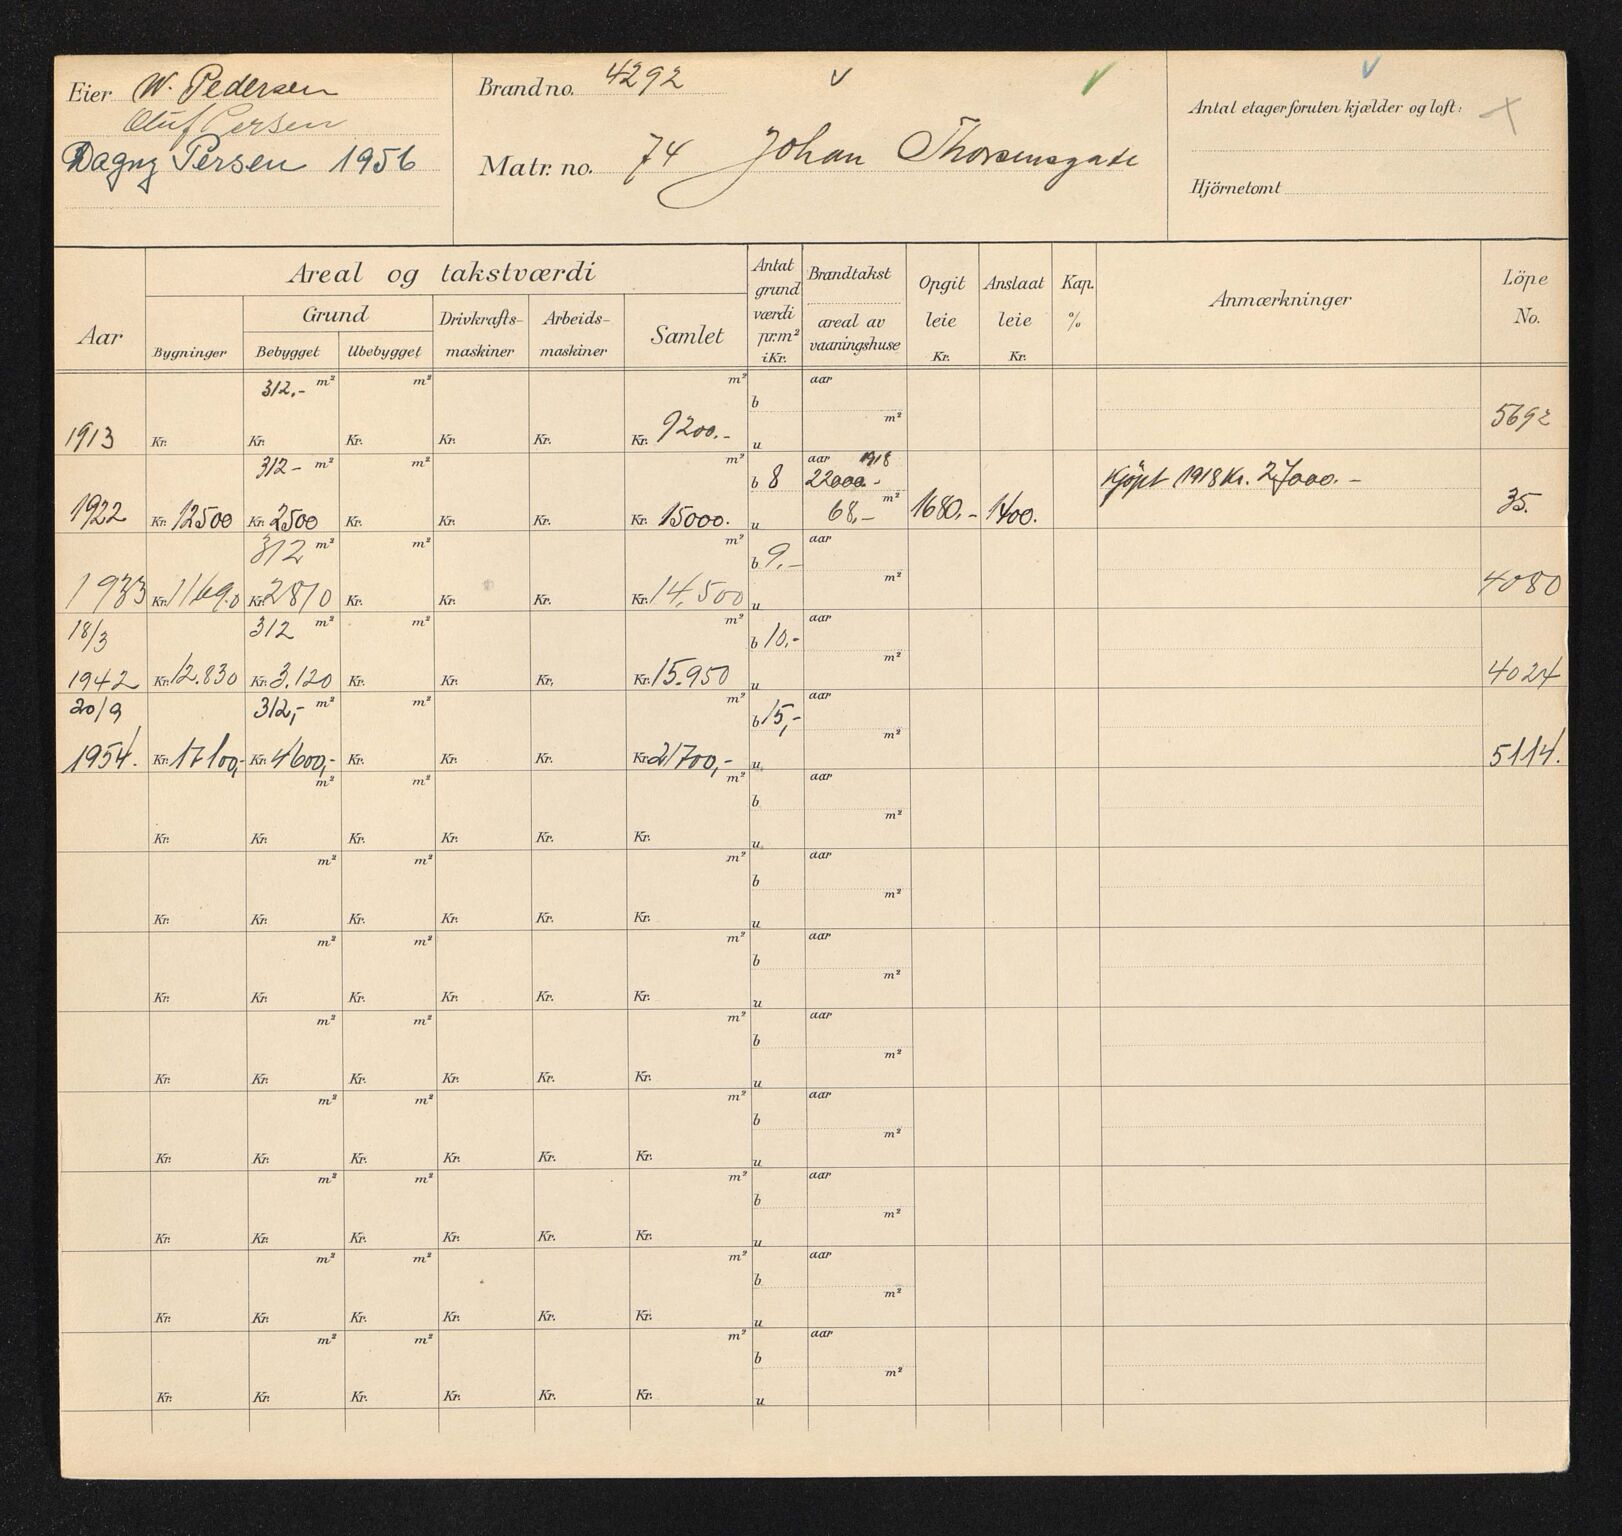 Eier W. Pedersen
Oluf Persen
Dagny Persen 1956
Brand no. 4292
Matr. no. 74 Johan Thorsensgate
Antal etager foruten kjælder og loft:
Hjörnetomt
Aar
Areal og takstværdi
Bygninger
Grund
Bebygget Ubebygget
Drivkrafts-
maskiner
Arbeids-
maskiner
Samlet
Antat
grund
værdi
pr. m²
i Kr.
Brandtakst
areal av
vaaningshuse
Opgit
leie
Kr.
Anslaat
leie
Kr.
Kap.
%
Anmærkninger
Löpe
No.
312.- m² m² m² aar
b
m²
1913 Kr. Kr. Kr. Kr. Kr. Kr. 9200.- u 5692
312- m² m² m² aar 1918
b 8 22000.- Kjöpt 1918 Kr. 27000.-
m²
1922 Kr. 12500 Kr. 2500 Kr. Kr. Kr. Kr. 15000. u 68,- 1680.- 1400. 35.
312 m² m² m² aar
b 9.-
m²
1933 Kr. 11690 Kr. 2810 Kr. Kr. Kr. Kr. 14.500 u 4080
18/3 312 m² m² m² aar
b 10,-
m²
1942 Kr. 12.830 Kr. 3.120 Kr. Kr. Kr. Kr. 15.950 u 4024
20/9 312,- m² m² m² aar
b 15,-
m²
1954. Kr. 17100,- Kr. 4600,- Kr. Kr. Kr. Kr. 21700,- u 5114.
m² m² m² aar
b
m²
Kr. Kr. Kr. Kr. Kr. Kr. u
m² m² m² aar
b
m²
Kr. Kr. Kr. Kr. Kr. Kr. u
m² m² m² aar
b
m²
Kr. Kr. Kr. Kr. Kr. Kr. u
m² m² m² aar
b
m²
Kr. Kr. Kr. Kr. Kr. Kr. u
m² m² m² aar
b
m²
Kr. Kr. Kr. Kr. Kr. Kr. u
m² m² m² aar
b
m²
Kr. Kr. Kr. Kr. Kr. Kr. u
m² m² m² aar
b
m²
Kr. Kr. Kr. Kr. Kr. Kr. u
m² m² m² aar
b
m²
Kr. Kr. Kr. Kr. Kr. Kr. u